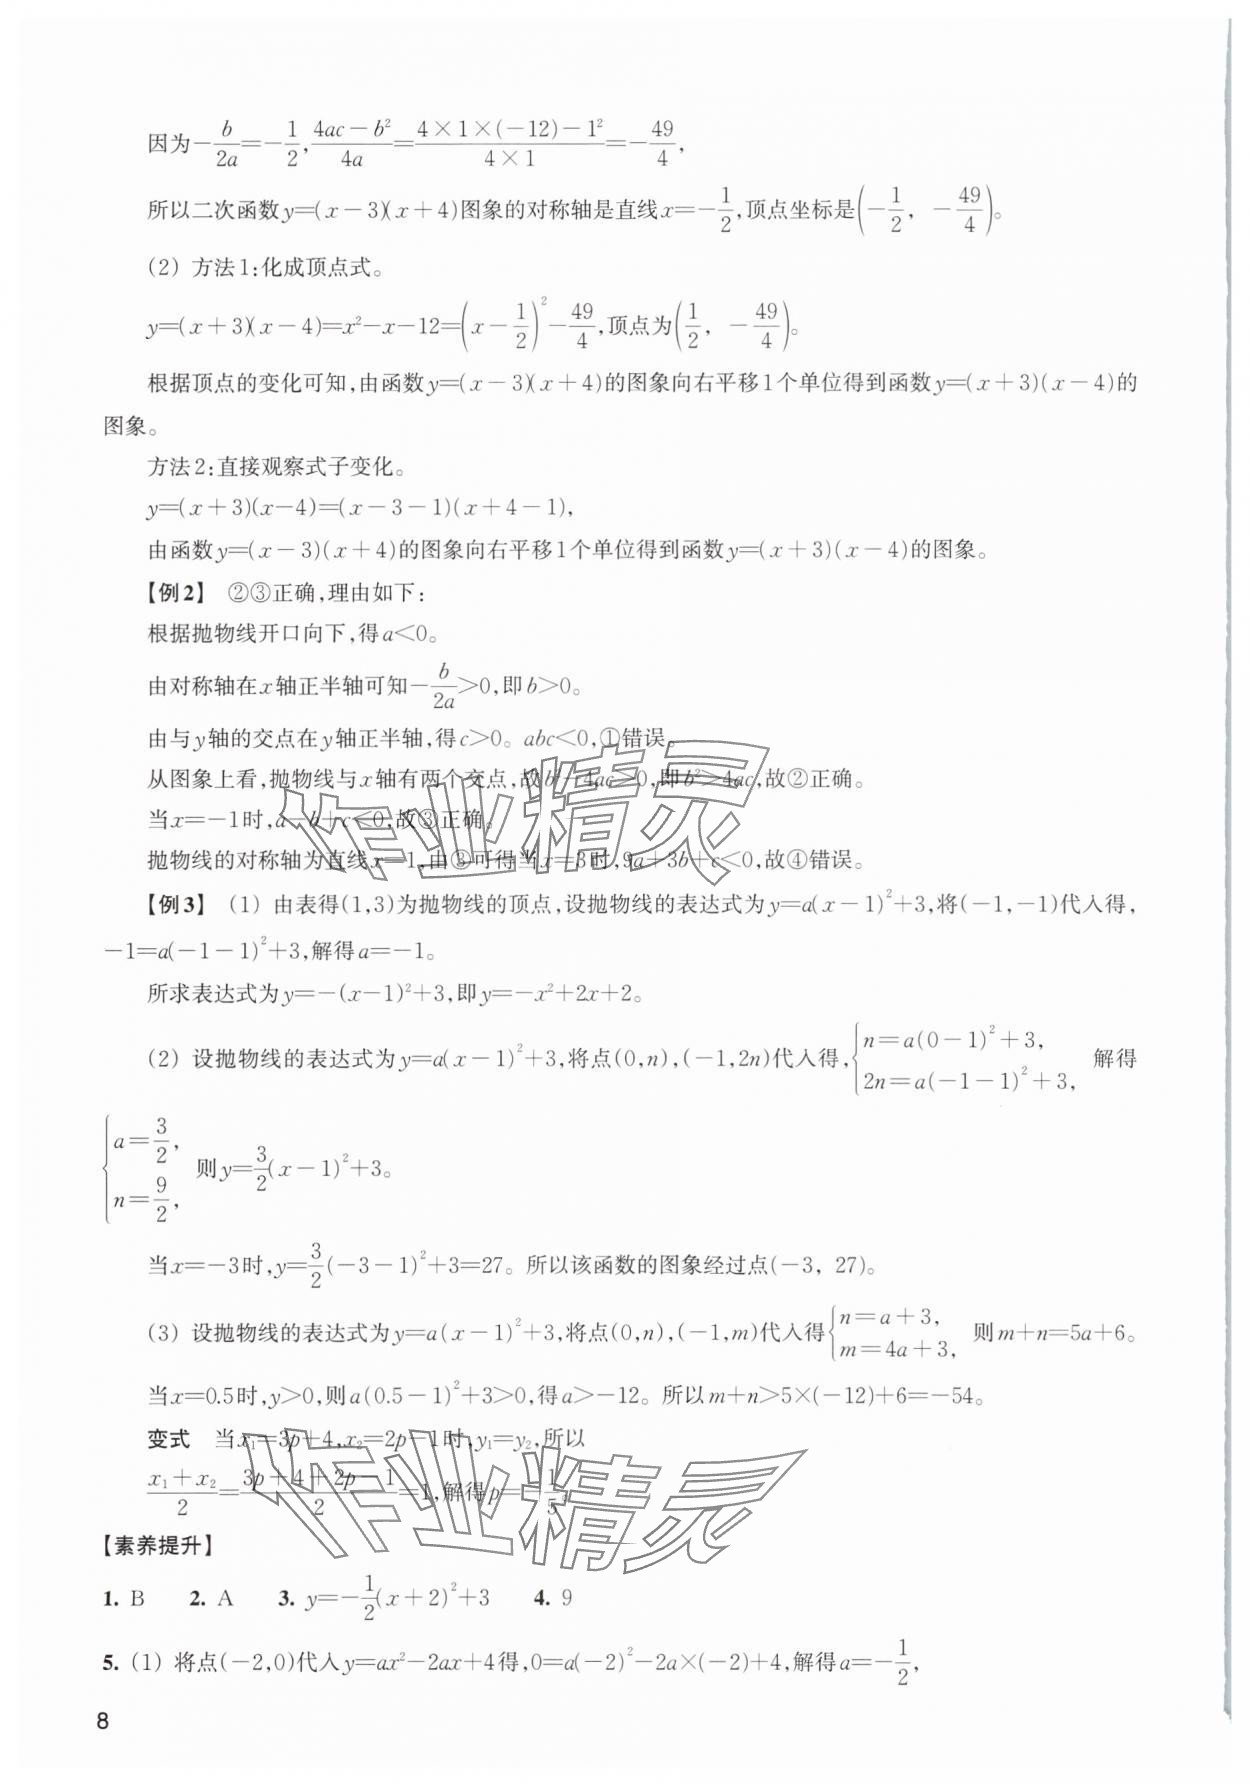 因为-b/2a=-1/2,(4ac-b²)/4a=(4×1×(-12)-1²)/(4×1)=-49/4,
所以二次函数y=(x-3)(x+4)图象的对称轴是直线x=-1/2,顶点坐标是(-1/2, -49/4)。
(2) 方法1:化成顶点式。
y=(x+3)(x-4)=x²-x-12=(x-1/2)²-49/4,顶点为(1/2, -49/4)。
根据顶点的变化可知,由函数y=(x-3)(x+4)的图象向右平移1个单位得到函数y=(x+3)(x-4)的
图象。
方法2:直接观察式子变化。
y=(x+3)(x-4)=(x-3-1)(x+4-1),
由函数y=(x-3)(x+4)的图象向右平移1个单位得到函数y=(x+3)(x-4)的图象。
【例2】 ②③正确,理由如下:
根据抛物线开口向下,得a<0。
由对称轴在x轴正半轴可知-b/2a>0,即b>0。
由与y轴的交点在y轴正半轴,得c>0。abc<0,①错误。
从图象上看,抛物线与x轴有两个交点,故b²-4ac>0,即b²>4ac,故②正确。
当x=-1时,a-b+c<0,故③正确。
抛物线的对称轴为直线x=1,由③可得当x=3时,9a+3b+c<0,故④错误。
【例3】 (1) 由表得(1,3)为抛物线的顶点,设抛物线的表达式为y=a(x-1)²+3,将(-1,-1)代入得,
-1=a(-1-1)²+3,解得a=-1。
所求表达式为y=-(x-1)²+3,即y=-x²+2x+2。
(2) 设抛物线的表达式为y=a(x-1)²+3,将点(0,n),(-1,2n)代入得,{n=a(0-1)²+3, 2n=a(-1-1)²+3, 解得
{a=3/2, n=9/2, 则y=3/2(x-1)²+3。
当x=-3时,y=3/2(-3-1)²+3=27。所以该函数的图象经过点(-3, 27)。
(3) 设抛物线的表达式为y=a(x-1)²+3,将点(0,n),(-1,m)代入得{n=a+3, m=4a+3, 则m+n=5a+6。
当x=0.5时,y>0,则a(0.5-1)²+3>0,得a>-12。所以m+n>5×(-12)+6=-54。
变式 当x₁=3p+4,x₂=2p-1时,y₁=y₂,所以
(x₁+x₂)/2=(3p+4+2p-1)/2=1,解得p=-1/5。
【素养提升】
1. B 2. A 3. y=-1/2(x+2)²+3 4. 9
5. (1) 将点(-2,0)代入y=ax²-2ax+4得,0=a(-2)²-2a×(-2)+4,解得a=-1/2,
8
作业精灵
作业精灵